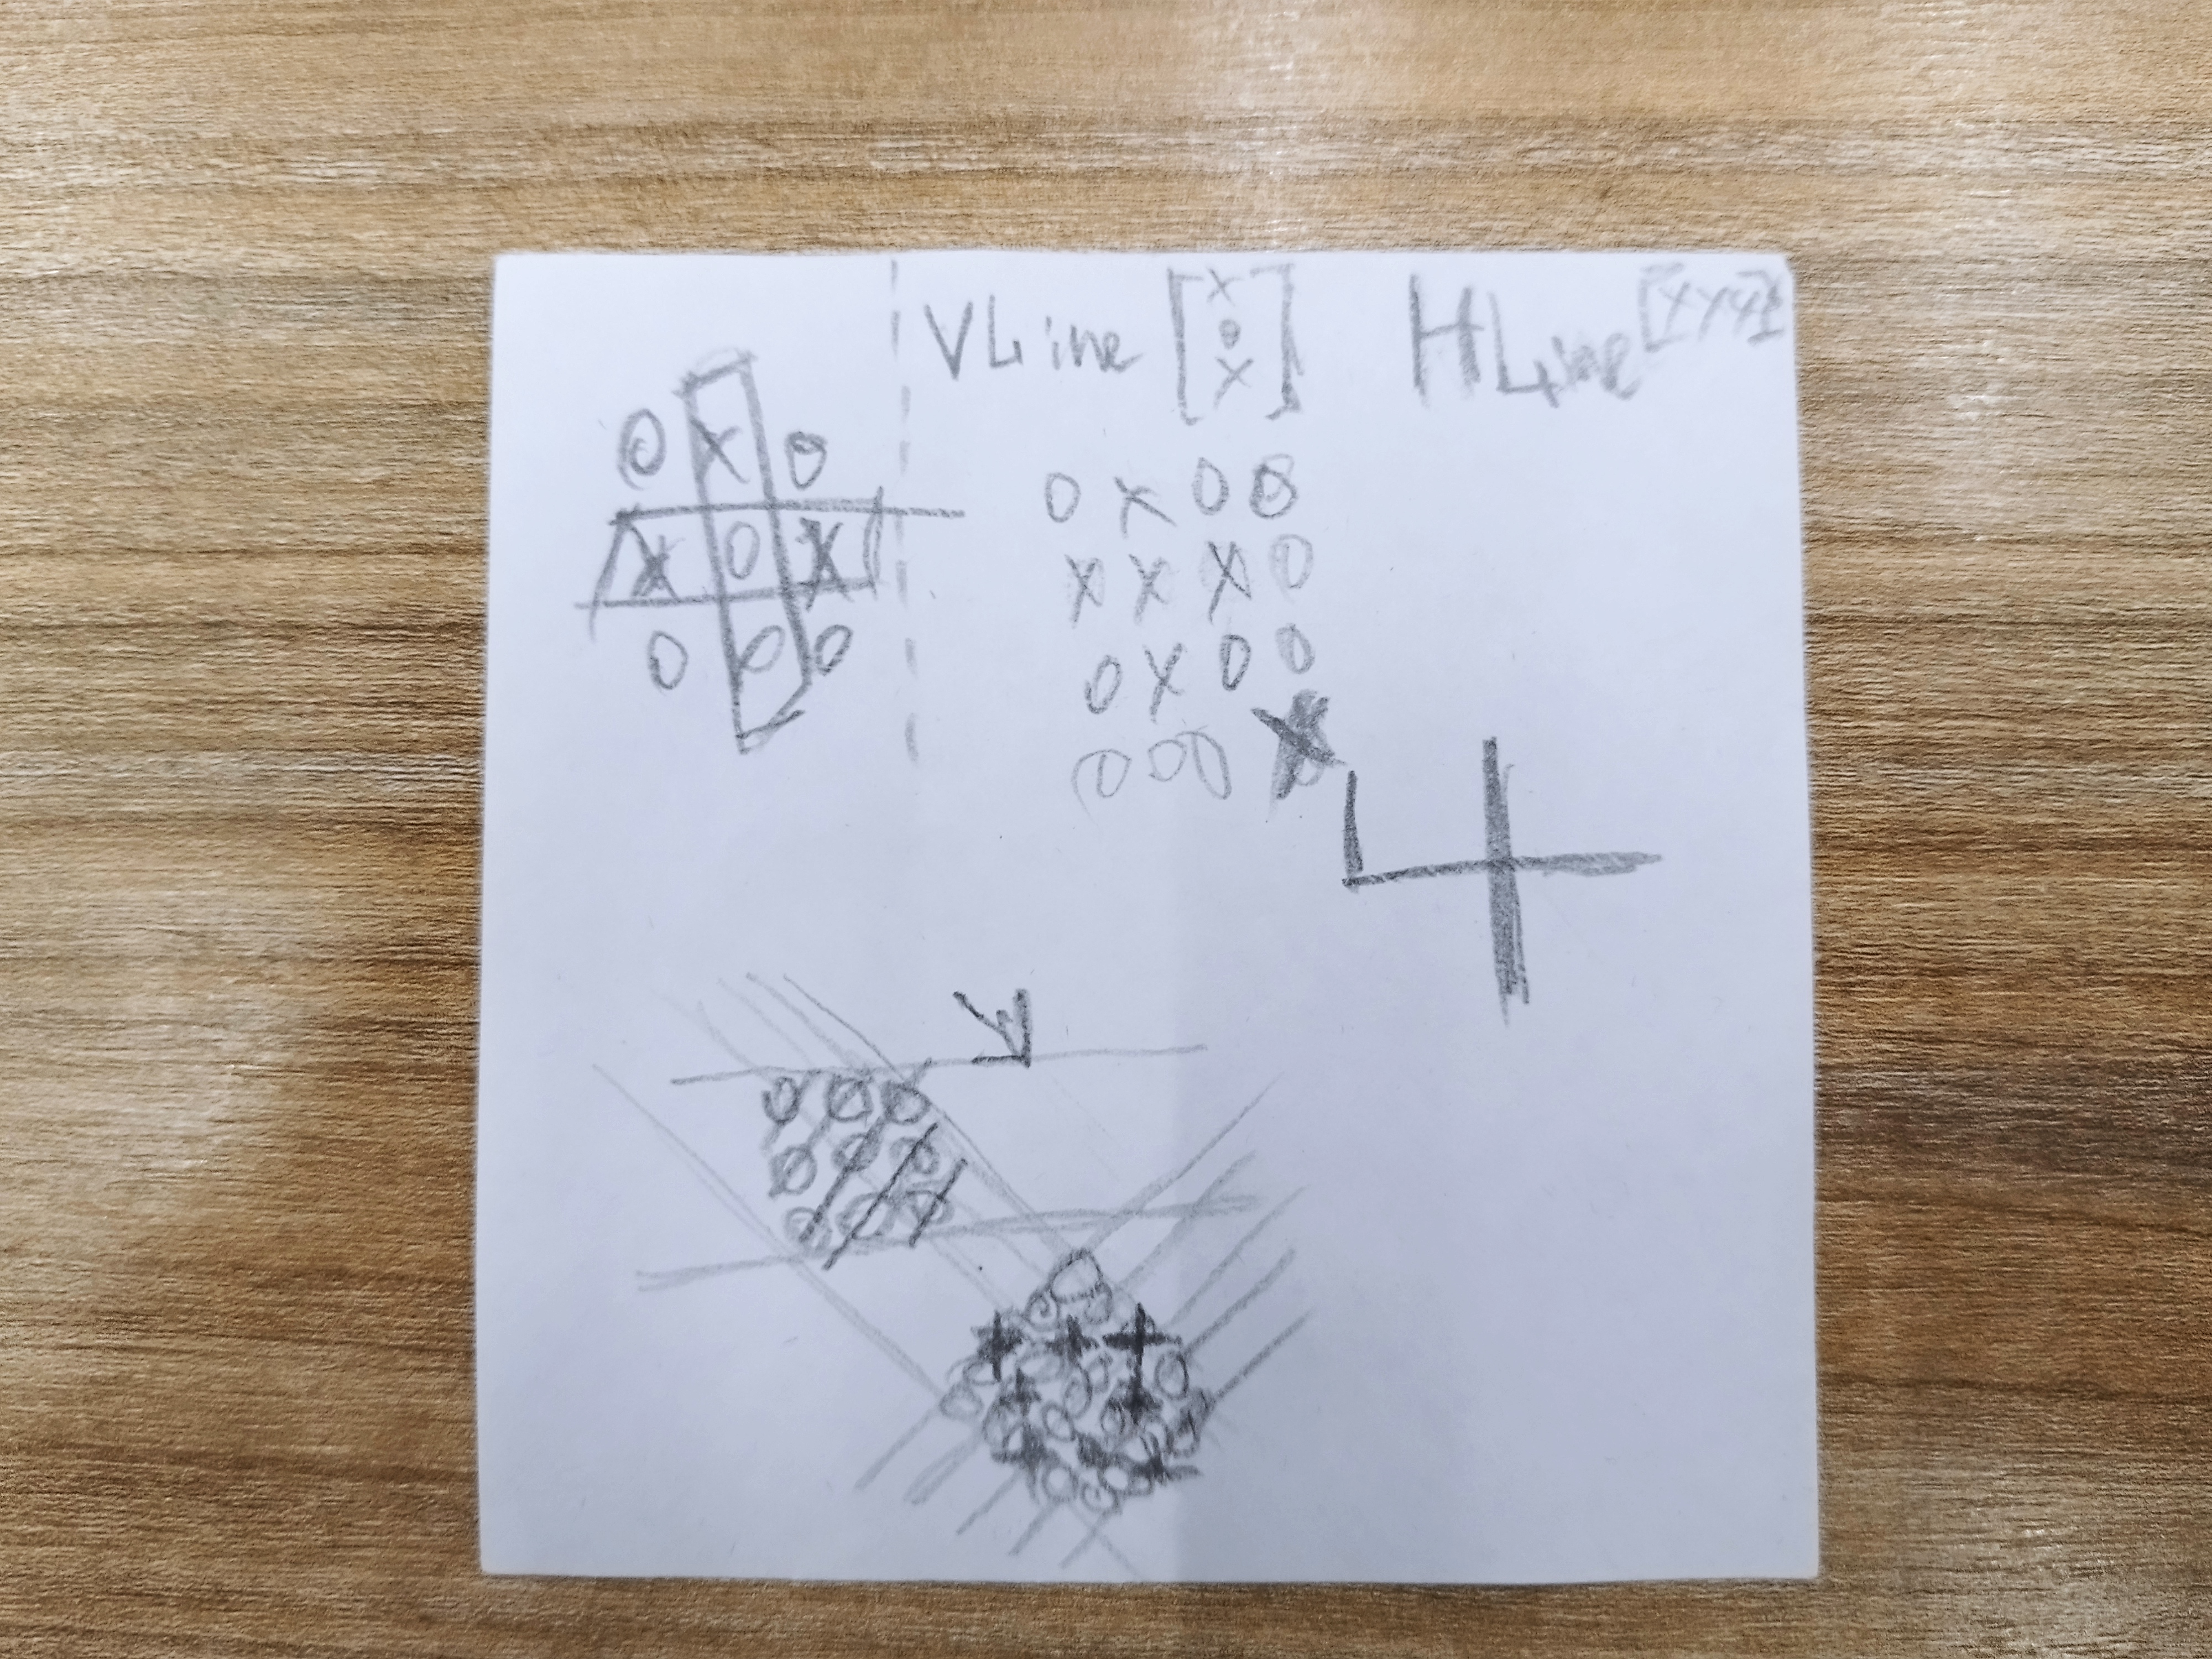 VLine [X O X] HLine [XXX]
O X O
X O X
O O O
O X O O
X X X O
O X O O
O O O X